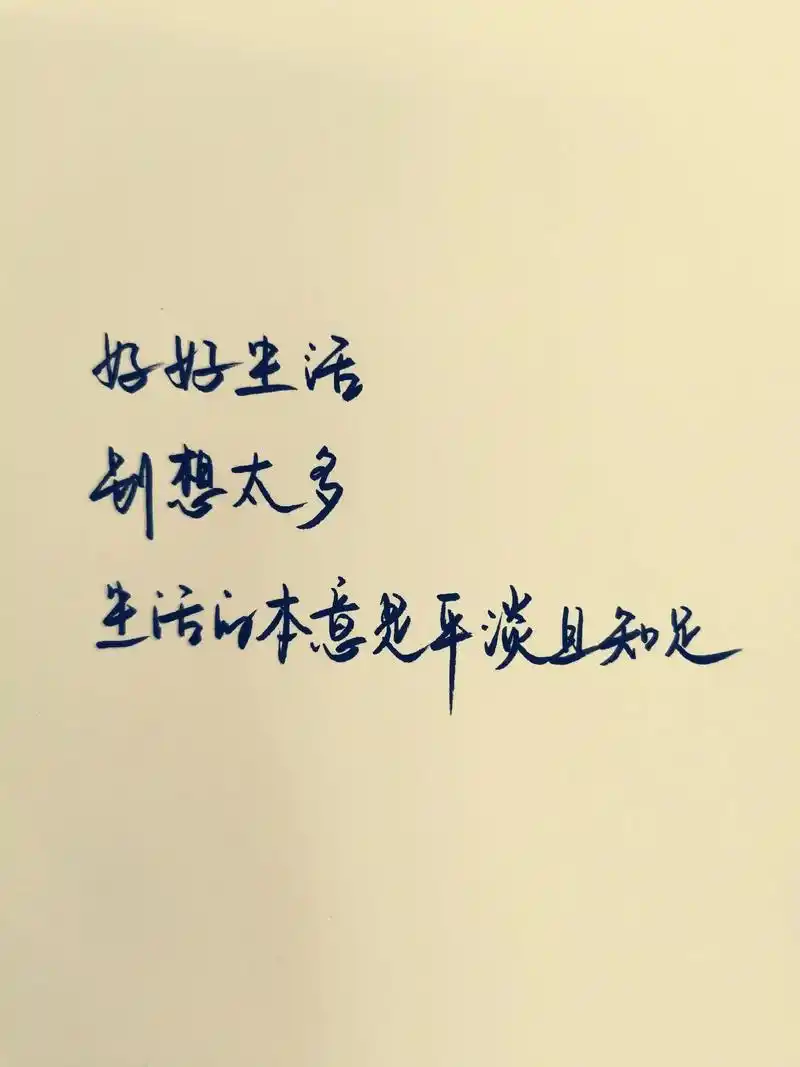 好好生活
别想太多
生活的本意是平淡且知足